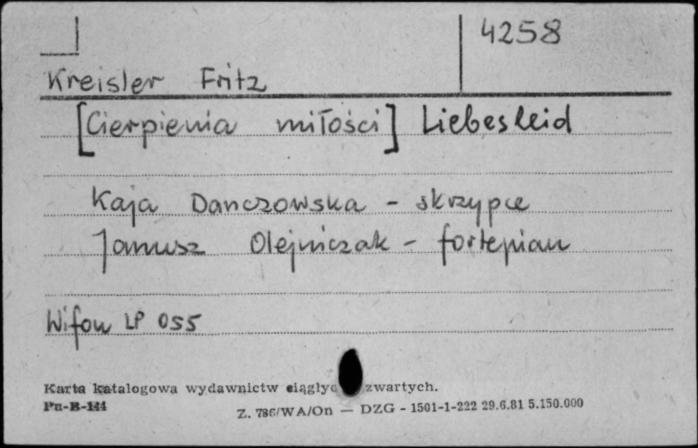 4258
Kreisler Fritz
[Cierpienia miłości] Liebesleid
Kaja Danczowska - skrzypce
Janusz Olejniczak - fortepian
Wifon LP 055
Karta katalogowa wydawnictw ciągłyc zwartych.
Pu-B-144
Z. 786/WA/On — DZG - 1501-1-222 29.6.81 5.150.000